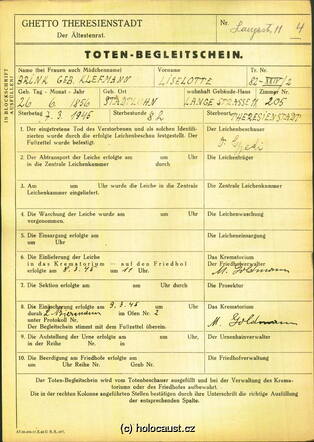 GHETTO THERESIENSTADT
Der Ältestenrat.
Nr.
Langest. 11 4
TOTEN-BEGLEITSCHEIN.
IN BLOCKSCHRIFT AUSFÜLLEN!
Name (bei Frauen auch Mädchenname) Vorname Tr. Nr.
BRINK GEB. KLEFMANN LISELOTTE
Geb. Tag - Monat - Jahr Geb. Ort wohnhaft Gebäude-Haus Zimmer Nr.
26 6 1856 STADTLOHN LANGE STRASSE 11 205
Sterbetag Sterbestunde Sterbeort
7. 3. 1945 THERESIENSTADT
1. Der eingetretene Tod des Verstorbenen und als solchen Identifizierten wurde durch die erfolgte Leichenbeschau festgestellt. Der Fußzettel wurde befestigt.
Der Leichenbeschauer
2. Der Abtransport der Leiche erfolgte am
um Uhr durch
Der Leichenträger
3. Am um Uhr wurde die Leiche in die Zentrale Leichenkammer eingeliefert.
Die Zentrale Leichenkammer
4. Die Waschung der Leiche wurde am um Uhr vorgenommen.
Die Leichenwaschung
5. Die Einsargung erfolgte am
um Uhr
Die Leicheneinsargung
6. Die Einlieferung der Leiche
in das Krematorium - auf den Friedhof
erfolgte am 8. 3. 45 um 11 Uhr.
Das Krematorium
Der Friedhofverwalter
M. Goldmann
7. Die Sektion erfolgte am um Uhr
Die Prosektur
8. Die Einäscherung erfolgte 9. 3. 45 um
durch im Ofen Nr. 2
unter Protokoll Nr.
Der Begleitschein stimmt mit dem Fußzettel überein.
Das Krematorium
M. Goldmann
9. Die Aufstellung der Urne erfolgte am um Uhr
in der Reihe Nr. in
Der Urnenhainverwalter
10. Die Beerdigung am Friedhofe erfolgte am
um Uhr Reihe Grab Nr.
Die Friedhofverwaltung
Der Toten-Begleitschein wird vom Totenbeschauer ausgefüllt und bei der Verwaltung des Krematoriums oder des Friedhofes aufbewahrt.
Die in der rechten Kolonne angeführten Stellen bestätigen durch ihre Unterschrift die richtige Ausführung der entsprechenden Spalte.
(c) holocaust.cz